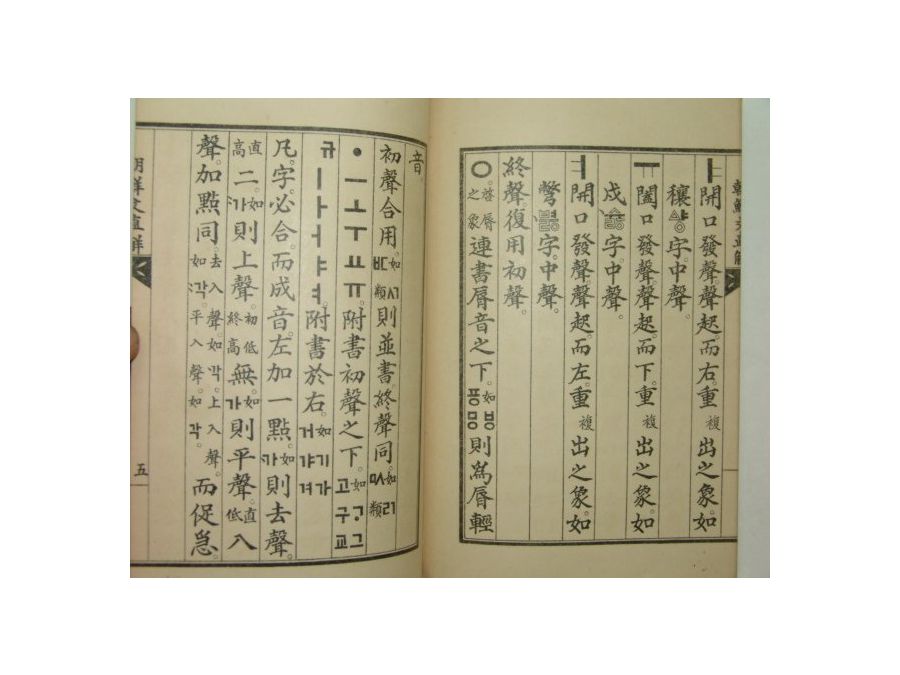 朝鮮文直解
ㅑ開口發聲。聲起。而右。重複出之象。如
穰샹字。中聲。
ㅠ闔口發聲。聲起。而下。重複出之象。如
戍字。中聲。
ㅕ開口發聲。聲起。而左。重複出之象。如
彆字。中聲。
終聲。復用初聲。
ㅇ啓唇之象。連書唇音之下。如 則爲唇輕
音。
初聲合用。如 類則並書。終聲同。如 類
ㆍㅡㅗㅜㅛㅠ。附書初聲之下。如 그고구교
규
ㅣㅏㅓㅑㅕ。附書於右。如기가거갸겨
凡。字。必合。而成音。左加一點。如가則去聲。
直高二。如가則上聲。初低終高無。如가則平聲。直低入
聲。加點同。去入聲。如각。上入聲。如각。平入聲。如각。而促急。
朝鮮文直解
五